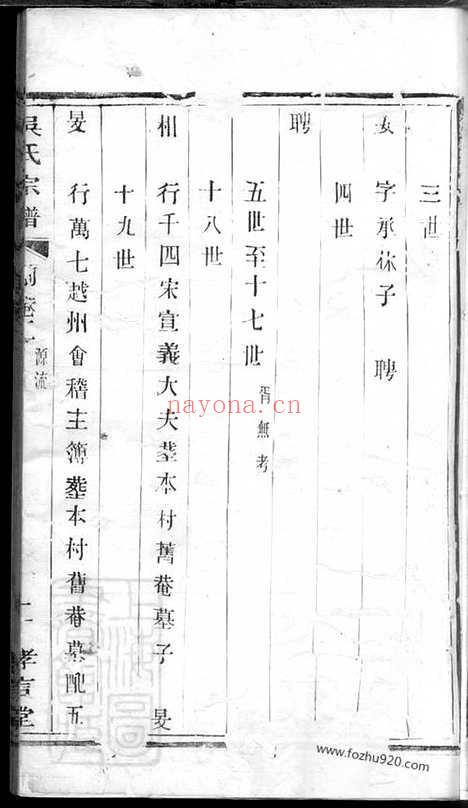 三世
安 字承休子 聘
四世
聘
五世至十七世 胥無考
十八世
相 行千四宋宣義大夫塟本村舊菴墓子 旻
十九世
旻 行萬七越州會稽主簿塟本村舊菴墓配五
吳氏宗譜
源流
孝言堂
nayona.cn
www.fozhu920.com